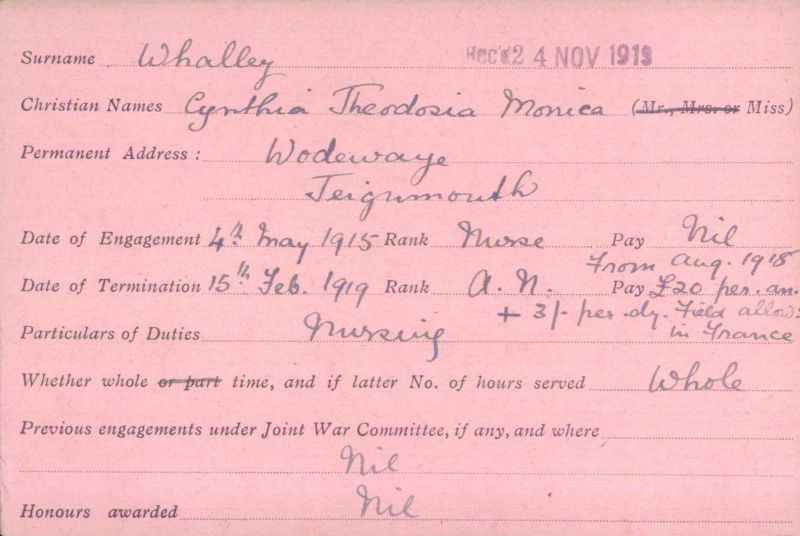 Surname Whalley Rec'd 24 NOV 1919
Christian Names Cynthia Theodosia Monica (Mr., Mrs. or Miss)
Permanent Address: Wodewaye
Teignmouth
Date of Engagement 4th May 1915 Rank Nurse Pay Nil
From Aug. 1918
Date of Termination 15th Feb. 1919 Rank A. N. Pay £20 per. an.
+ 3/- per. dy. Field allow:
Particulars of Duties Nursing in France
Whether whole or part time, and if latter No. of hours served Whole
Previous engagements under Joint War Committee, if any, and where
Nil
Honours awarded Nil